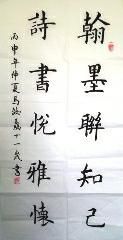 翰墨聯知己
詩書悅雅懷
丙申年仲夏馬
十一歲書